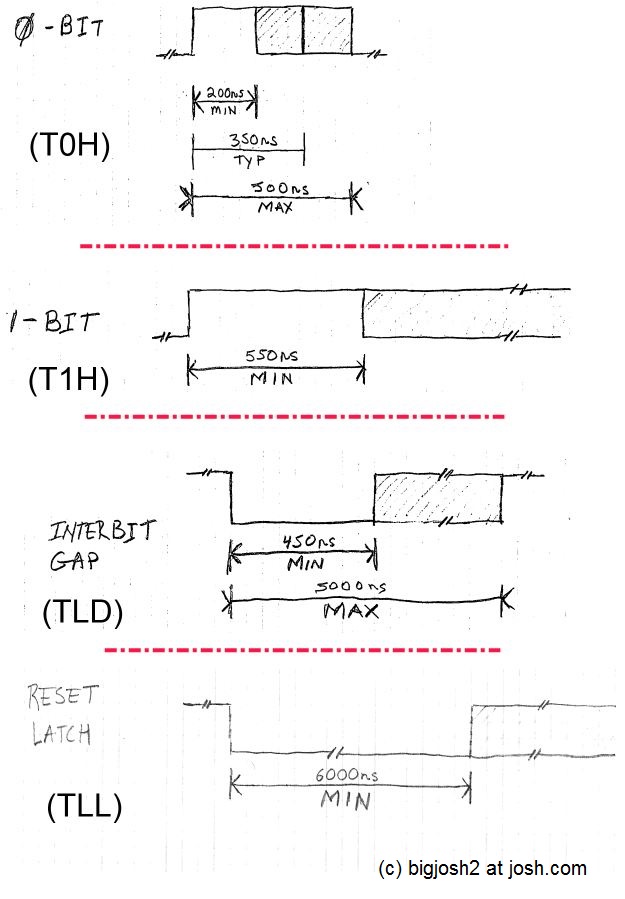 0-BIT
200ns
MIN
(T0H)
350ns
TYP
500ns
MAX
1-BIT
550ns
MIN
(T1H)
INTERBIT
GAP
450ns
MIN
5000ns
(TLD)
MAX
RESET
LATCH
6000ns
MIN
(TLL)
(c) bigjosh2 at josh.com